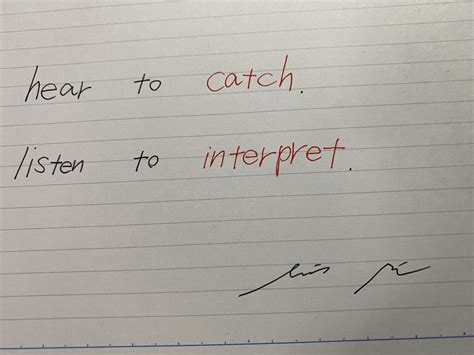 hear to catch.
listen to interpret.